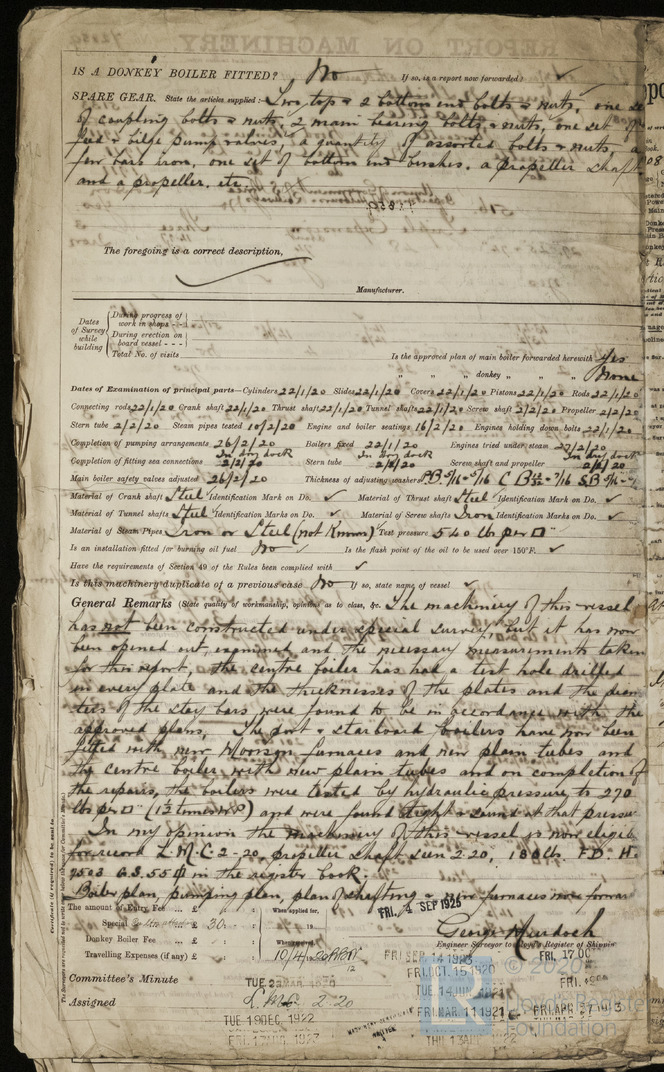 IS A DONKEY BOILER FITTED? No If so, is a report now forwarded? ✓
SPARE GEAR. State the articles supplied:— Two top & 2 bottom end bolts & nuts, one set
of coupling bolts & nuts, 2 main bearing bolts & nuts, one set of
feed & bilge pump valves, a quantity of assorted bolts & nuts, a
few bars iron, one set of bottom end bushes, a propeller shaft
and a propeller. etc.
The foregoing is a correct description,
Manufacturer.
Dates of Survey while building
During progress of work in shops - -
During erection on board vessel - - -
Total No. of visits
Is the approved plan of main boiler forwarded herewith Yes
" " " donkey " " " None
Dates of Examination of principal parts—Cylinders 22/1/20 Slides 22/1/20 Covers 22/1/20 Pistons 22/1/20 Rods 22/1/20
Connecting rods 22/1/20 Crank shaft 22/1/20 Thrust shaft 22/1/20 Tunnel shafts 22/1/20 Screw shaft 2/2/20 Propeller 2/2/20
Stern tube 2/2/20 Steam pipes tested 10/2/20 Engine and boiler seatings 16/2/20 Engines holding down bolts 22/1/20
Completion of pumping arrangements 26/2/20 Boilers fixed 22/1/20 Engines tried under steam 27/2/20
Completion of fitting sea connections In dry dock 2/2/20 Stern tube In dry dock 2/2/20 Screw shaft and propeller In dry dock 2/2/20
Main boiler safety valves adjusted 26/2/20 Thickness of adjusting washers
Material of Crank shaft Steel Identification Mark on Do. ✓ Material of Thrust shaft Steel Identification Mark on Do. ✓
Material of Tunnel shafts Steel Identification Marks on Do. ✓ Material of Screw shafts Iron Identification Marks on Do. ✓
Material of Steam Pipes Iron or Steel (not known) Test pressure 540 lbs per □"
Is an installation fitted for burning oil fuel No Is the flash point of the oil to be used over 150°F. ✓
Have the requirements of Section 49 of the Rules been complied with ✓
Is this machinery duplicate of a previous case No If so, state name of vessel ✓
General Remarks (State quality of workmanship, opinions as to class, &c. The machinery of this vessel
has not been constructed under special survey, but it has now
been opened out, examined and the necessary measurements taken
for this report, the centre boiler has had a test hole drilled
in every plate and the thicknesses of the plates and the diame
ters of the stay bars were found to be in accordance with the
approved plans. The port & starboard boilers have now been
fitted with new Morison furnaces and new plain tubes and
the centre boiler with new plain tubes and on completion of
the repairs, the boilers were tested by hydraulic pressure to 270
lbs per □" (1½ times W.P.) and were found tight & sound at that pressure
In my opinion the machinery of this vessel is now eligible
for record L.M.C. 2-20, propeller shaft seen 2-20, 180 lbs. F.D. H.
7503 G.S. 55 in the register book.
Boiler plan, pumping plan, plan of shafting & new furnaces now forward
The amount of Entry Fee ... £
Special £ 30
Donkey Boiler Fee ... £
Travelling Expenses (if any) £
When applied for,
When received,
10/4/20
FRI. 4 SEP 1925
George Murdoch
Engineer Surveyor to Lloyd's Register of Shipping
Committee's Minute
Assigned L.M.C. 2.20
TUE. 19 DEC. 1922
FRI. OCT. 15 1920
FRI. MAR. 11 1921
© 2020
Lloyd's Register
Foundation